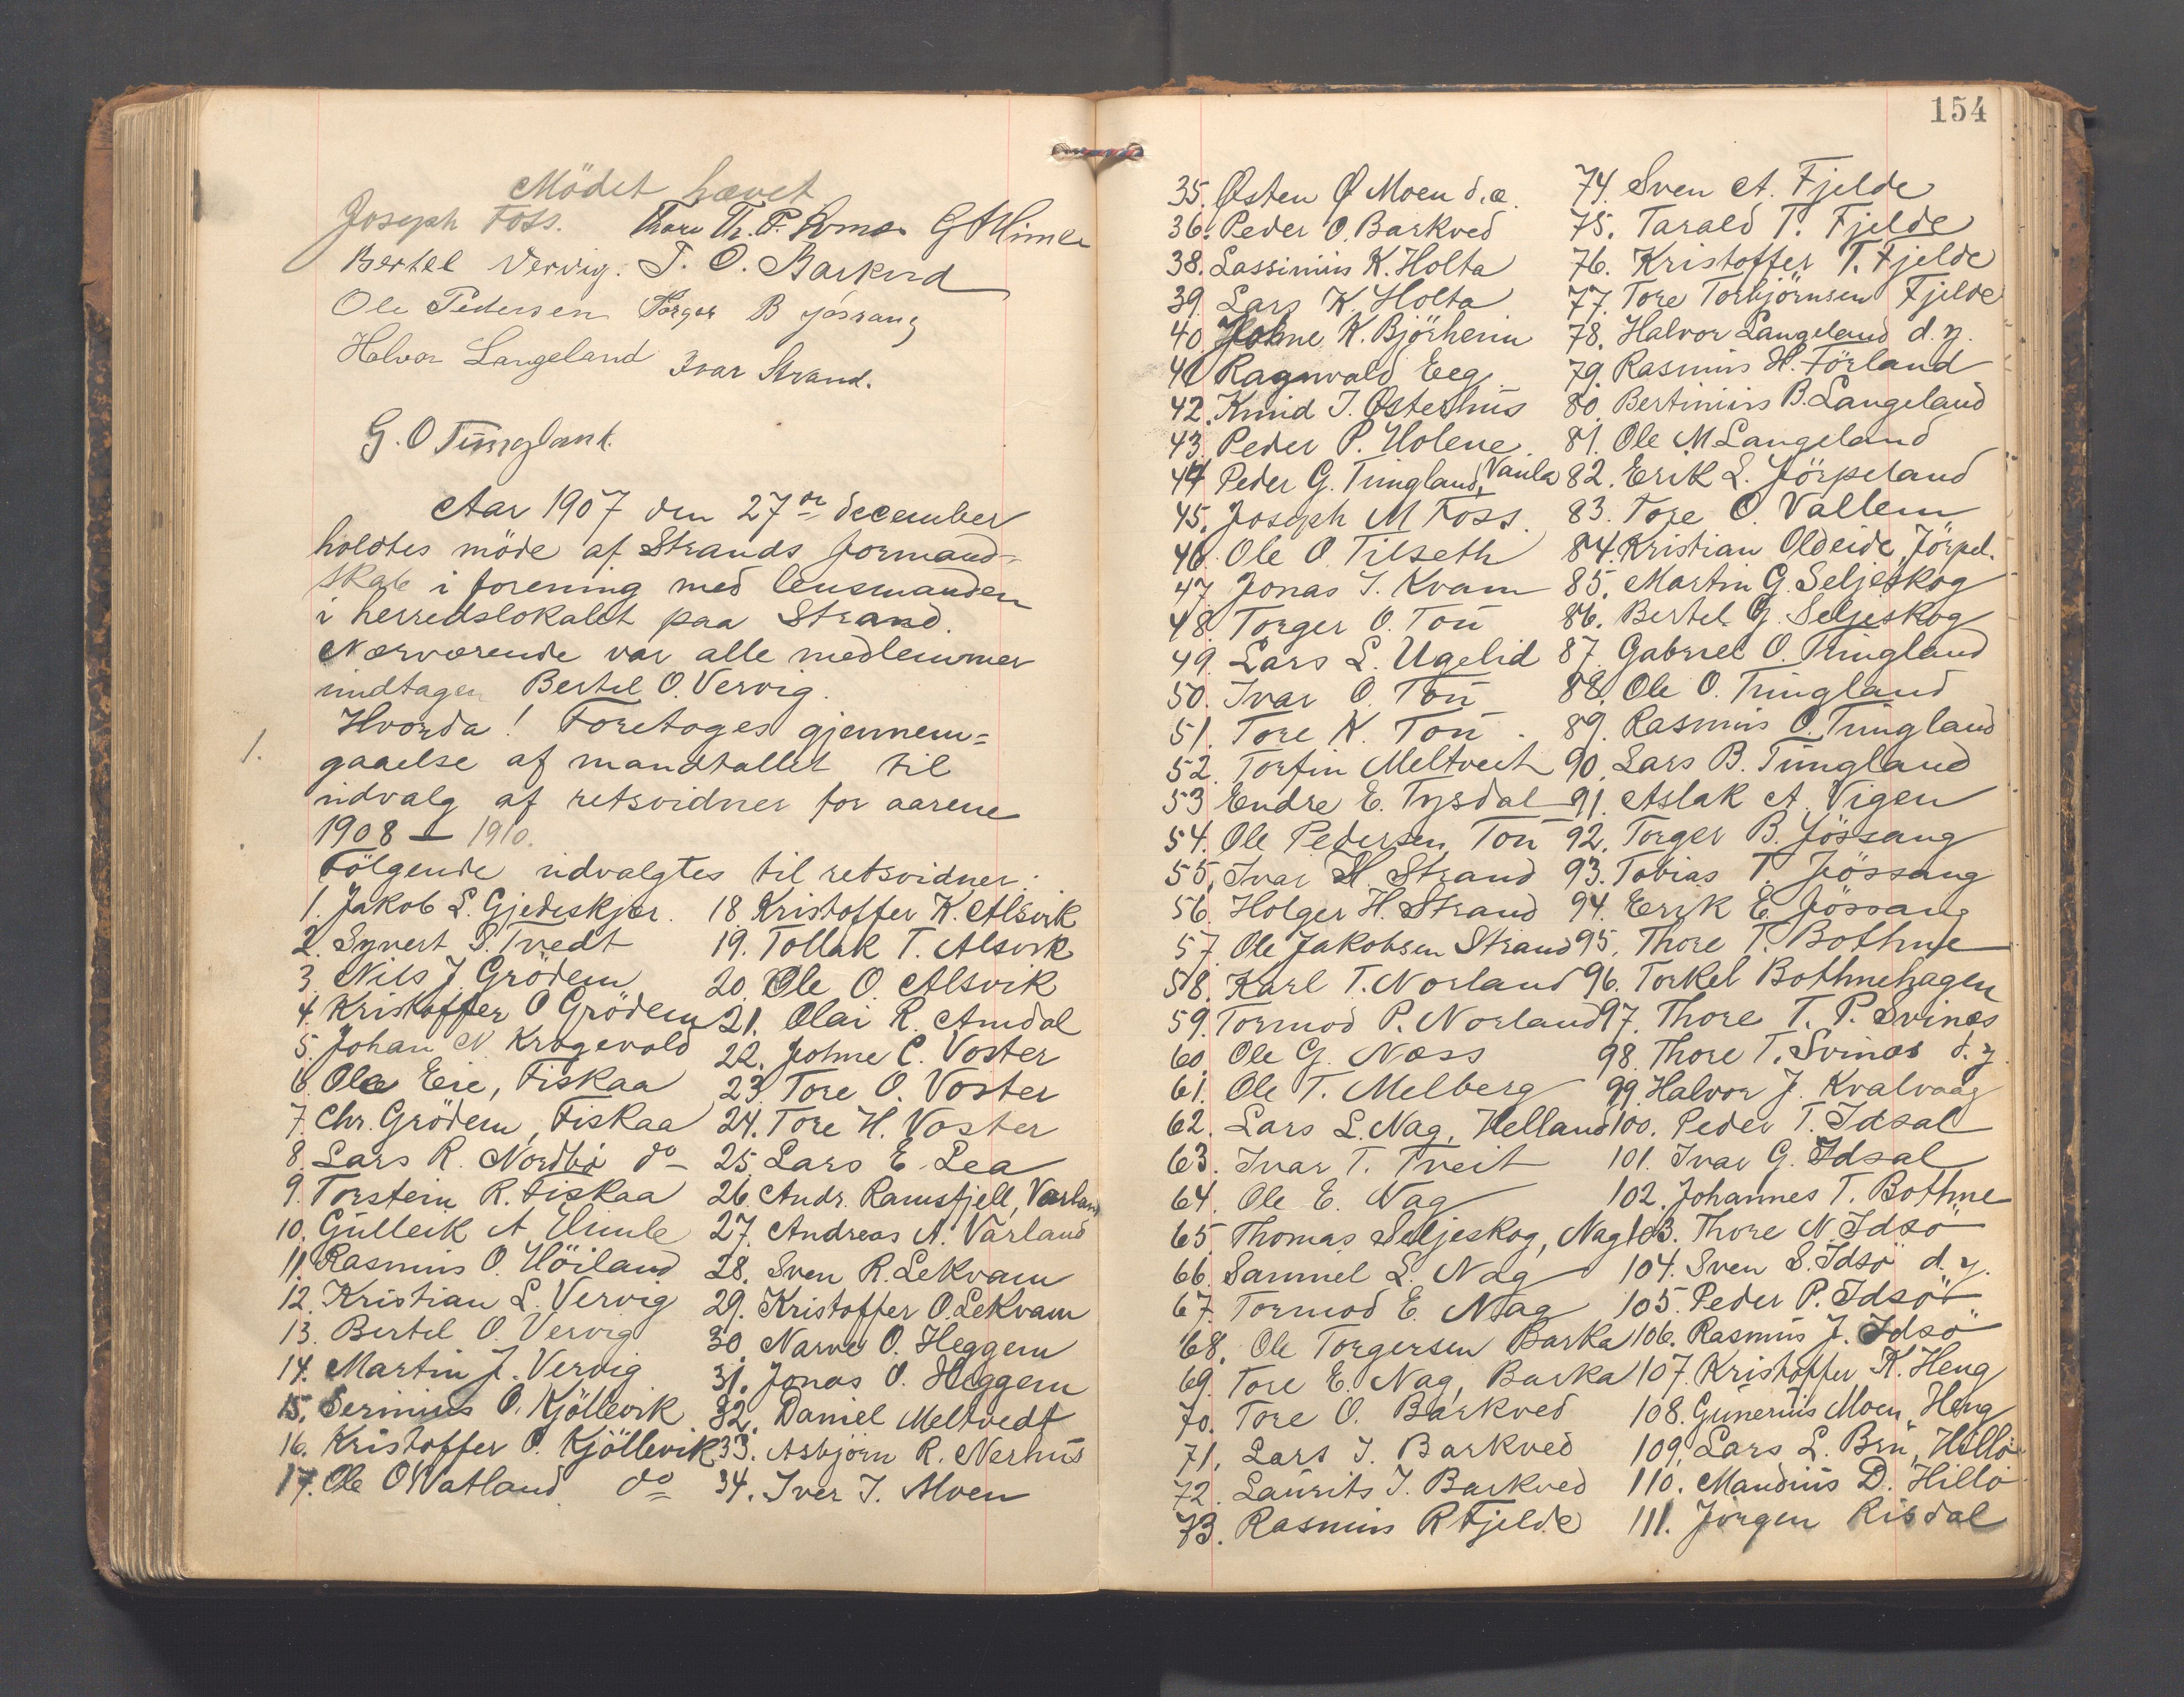 Mödet hævet
Joseph Foss. Thore Th. P. G A Himle
Bertel Vervig. T. O. Barkved
Ole Pedersen Torger B Jøssang
Halvor Langeland Ivar Strand.
G. O Tungland.
Aar 1907 den 27de december
holdtes möde af Strands formand=
skab i forening med lensmanden
i herredslokalet paa Strand.
Nærværende var alle medlemmer
undtagen Bertel O. Vervig.
Hvorda! Foretages gjennem=
1. gaaelse af mandtallet til
udvalg af retsvidner for aarene
1908 – 1910.
Fölgende udvalgtes til retsvidner:
1. Jakob L. Gjedeskjær.
2. Syvert S. Tvedt
3. Nils J. Grödem
4. Kristoffer O Grödem
5. Johan N. Krogevold
6. Ole Eie, Fiskaa
7. Chr. Grödem, Fiskaa
8. Lars R. Nordbö do
9. Torstein R. Fiskaa
10. Gulleik A Himle
11. Rasmus O. Höiland
12. Kristian L. Vervig
13. Bertel O. Vervig
14. Martin J. Vervig
15. Serinius O. Kjöllevik
16. Kristoffer O. Kjöllevik
17. Ole O Vatland do
18 Kristoffer K. Alsvik
19. Tollak T. Alsvik
20. Ole O. Alsvik
21. Olai R. Amdal
22. Johne C. Voster
23. Tore O. Voster
24. Tore H. Voster
25. Lars E. Lea
26. Andr. Ramsfjell, Varland
27. Andreas A. Varland
28. Sven R. Lekvam
29. Kristoffer O. Lekvam
30. Narve O. Heggem
31. Jonas O. Heggem
32. Daniel Meltvedt
33. Asbjörn R. Nerhus
34. Iver I. Moen
154
35. Østen Ø Moen d.æ.
36. Peder O. Barkved
38. Lassinius K. Holta
39. Lars K. Holta
40. Johne K. Björheim
41 Ragnvald Eeg
42. Knud I. Østerhus
43. Peder P. Holene
44 Peder G. Tungland, Vaula
45. Joseph M Foss.
46. Ole O. Tilseth
47. Jonas I. Kvam
48. Torger O. Tou
49. Lars L. Ugelid
50. Ivar O. Tou
51. Tore K. Tou
52. Torfin Meltveit
53 Endre E. Tysdal
54. Ole Pedersen Tou
55. Ivar H Strand
56. Holger H. Strand
57. Ole Jakobsen Strand
58. Karl T. Norland
59. Tormod P. Norland
60. Ole G. Næss
61. Ole T. Melberg
62. Lars L. Nag, Helland
63. Ivar T. Tveit
64. Ole E. Nag
65. Thomas Seljeskog, Nag
66. Samuel L. Nag
67. Tormod E. Nag
68. Ole Torgersen Barka
69. Tore E. Nag, Barka
70. Tore O. Barkved
71. Lars I. Barkved
72. Laurits I. Barkved
73. Rasmus R Fjelde
74. Sven A. Fjelde
75. Tarald T. Fjelde
76. Kristoffer T. Fjelde
77. Tore Torbjörnsen Fjelde
78. Halvor Langeland d.y.
79. Rasmus H. Förland
80. Bertinius B. Langeland
81. Ole M Langeland
82. Erik L. Jörpeland
83. Tore O. Vallem
84. Kristian Oldeide, Jörpel.
85. Martin G. Seljeskog
86. Bertel G. Seljeskog
87. Gabriel O. Tungland
88. Ole O. Tungland
89. Rasmus O. Tungland
90. Lars B. Tungland
91. Aslak A. Vigen
92. Torger B. Jössang
93. Tobias T. Jössang
94. Erik E. Jössang
95. Thore T. Bothne
96. Torkel Bothnehagen
97. Thore T. P. Svinæs
98. Thore T. Svinæs d.y.
99. Halvor J. Kvalvaag
100. Peder T. Idsal
101. Ivar G. Idsal
102. Johannes T. Bothne
103. Thore N. Idsö
104. Sven S. Idsö d.y.
105. Peder P. Idsö
106. Rasmus J. Idsö
107. Kristoffer K. Heng
108. Gunerius Moen, Heng
109. Lars L. Bru, Hillö
110. Maudius D. Hillö
111. Jörgen Risdal